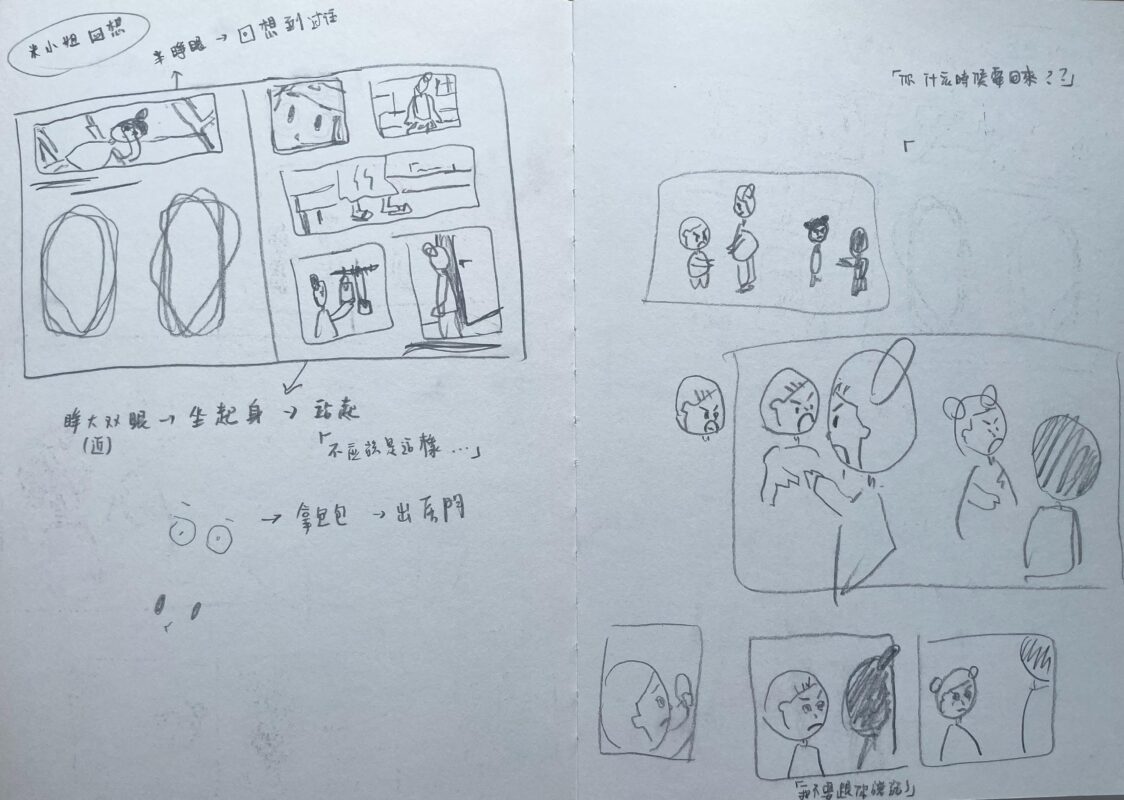 米小姐回想
半睜眼 → 回想到过往
睜大双眼 → 坐起身 → 站起
(近)
「不應該是這樣...」
→ 拿包包 → 出房門
「你什么時侯要回來??」
「
「我不要跟你講話」